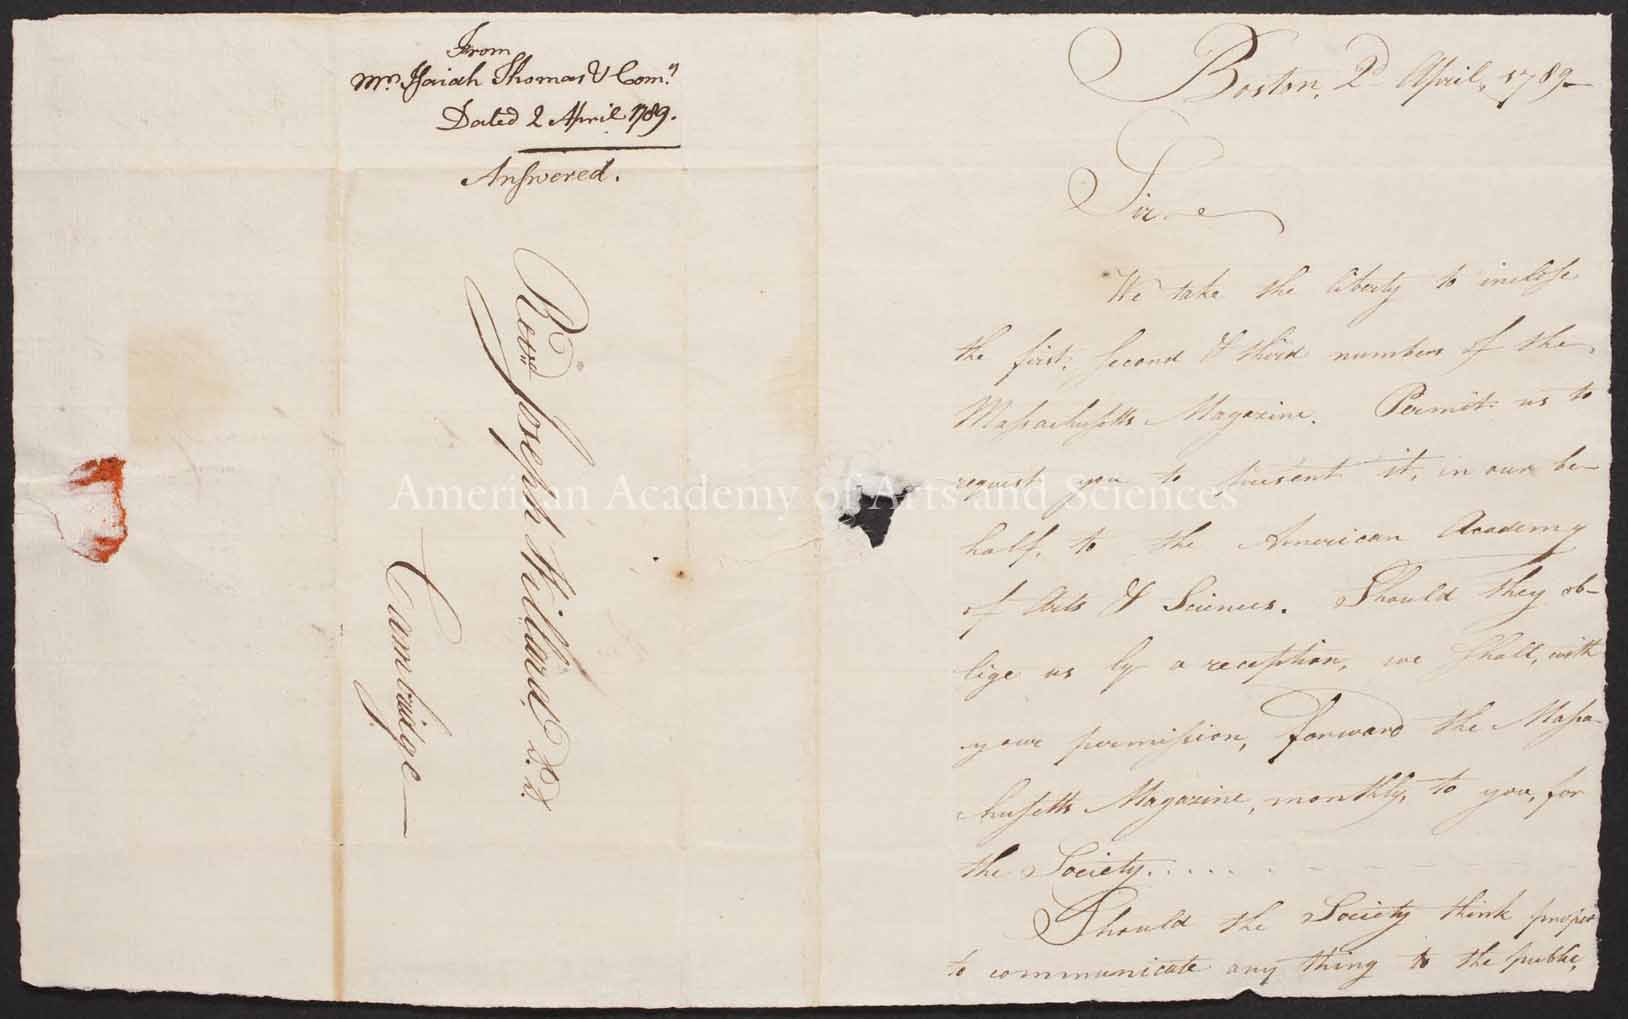 From
Mrs. Isaiah Thomas & Comy.
Dated 2 April 1789.
Answered.
Revd. Joseph Willard D.D.
Cambridge
Boston, 2d April, 1789
Sir
We take the liberty to inclose
the first, second & third numbers of the
Massachusetts Magazine. Permit us to
request you to present it, in our be-
half, to the American Academy
of Arts & Sciences. Should they ob-
lige us by a reception, we shall, with
your permission, forward the Massa-
chusetts Magazine, monthly, to you, for
the Society.
Should the Society think proper
to communicate any thing to the public,
American Academy of Arts and Sciences